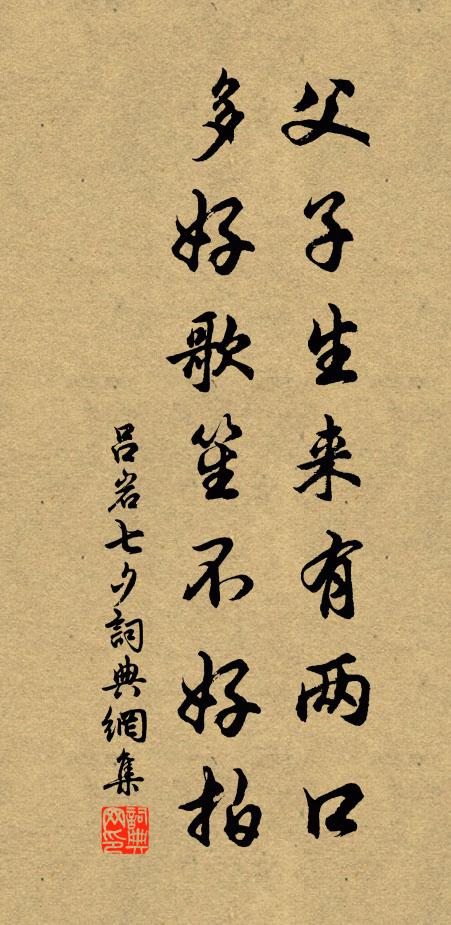 父子生来有两口
多好歌笙不好拍
吕岩七夕詞典網集
詞典網印